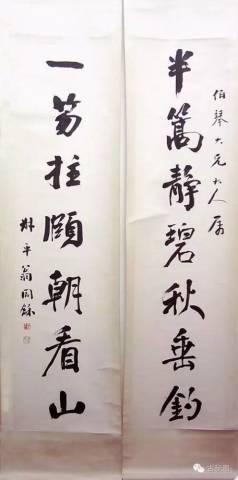 伯琴大兄大人属
半篙靜碧秋垂釣
一笏拄頤朝看山
叔平翁同龢